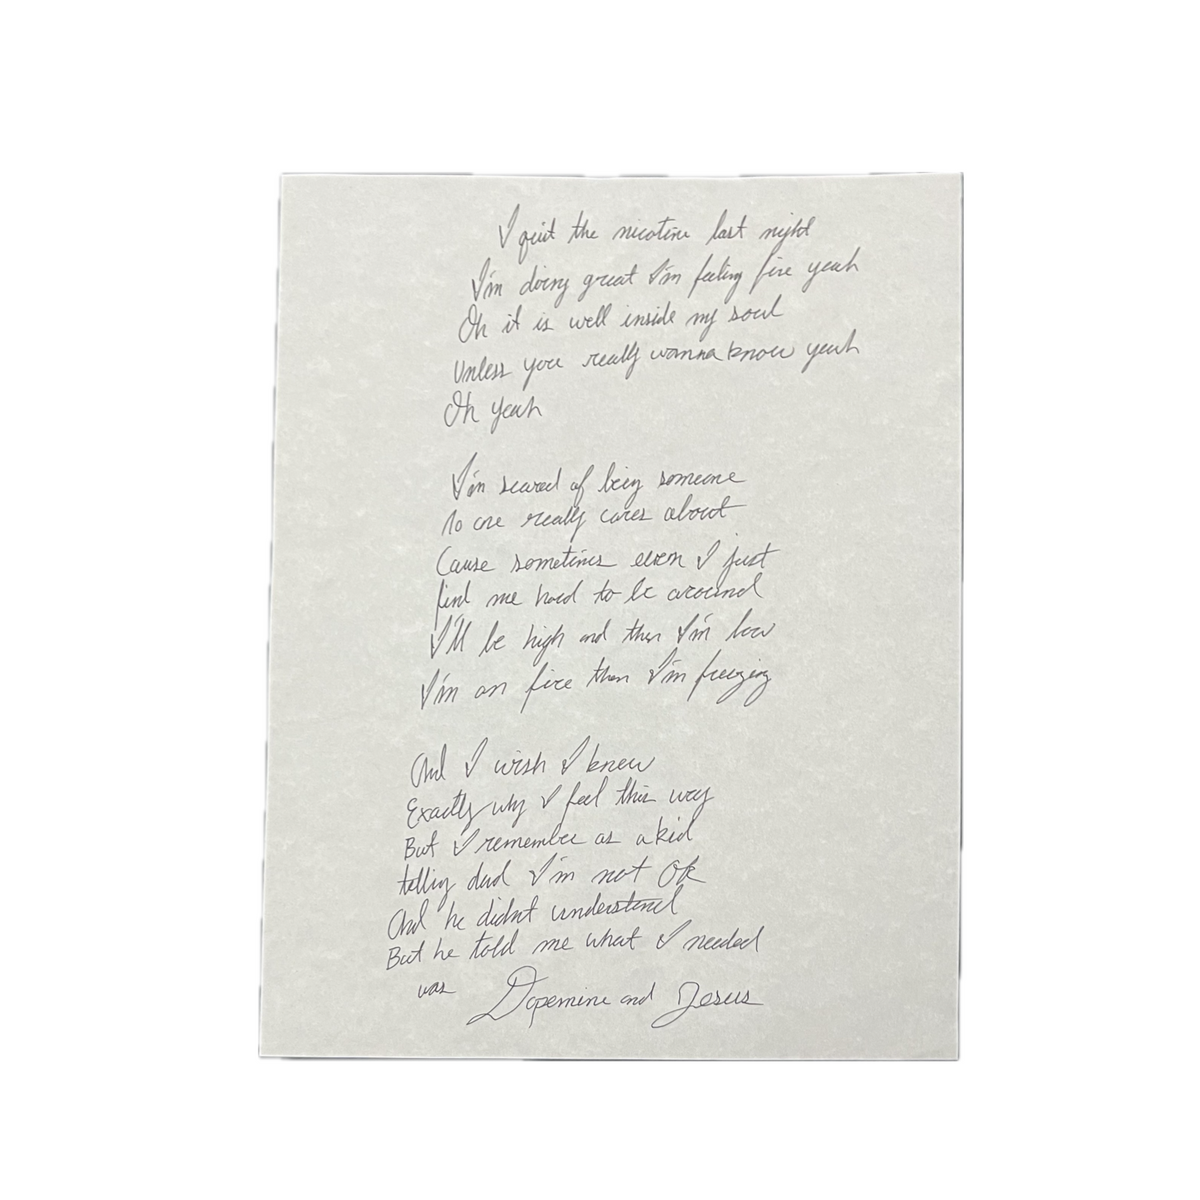 I quit the nicotine last night
I'm doing great I'm feeling fine yeah
Oh it is well inside my soul
Unless you really wanna know yeah
Oh yeah
I'm scared of being someone
No one really cares about
Cause sometimes even I just
find me hard to be around
I'll be high and then I'm low
I'm on fire then I'm freezing
And I wish I knew
Exactly why I feel this way
But I remember as a kid
telling dad I'm not OK
And he didn't understand
But he told me what I needed
was Dopemine and Jesus